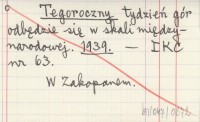 Tegoroczny tydzień gór
odbędzie się w skali między-
narodowej. 1939. — IKC
nr 63.
W Zakopanem.